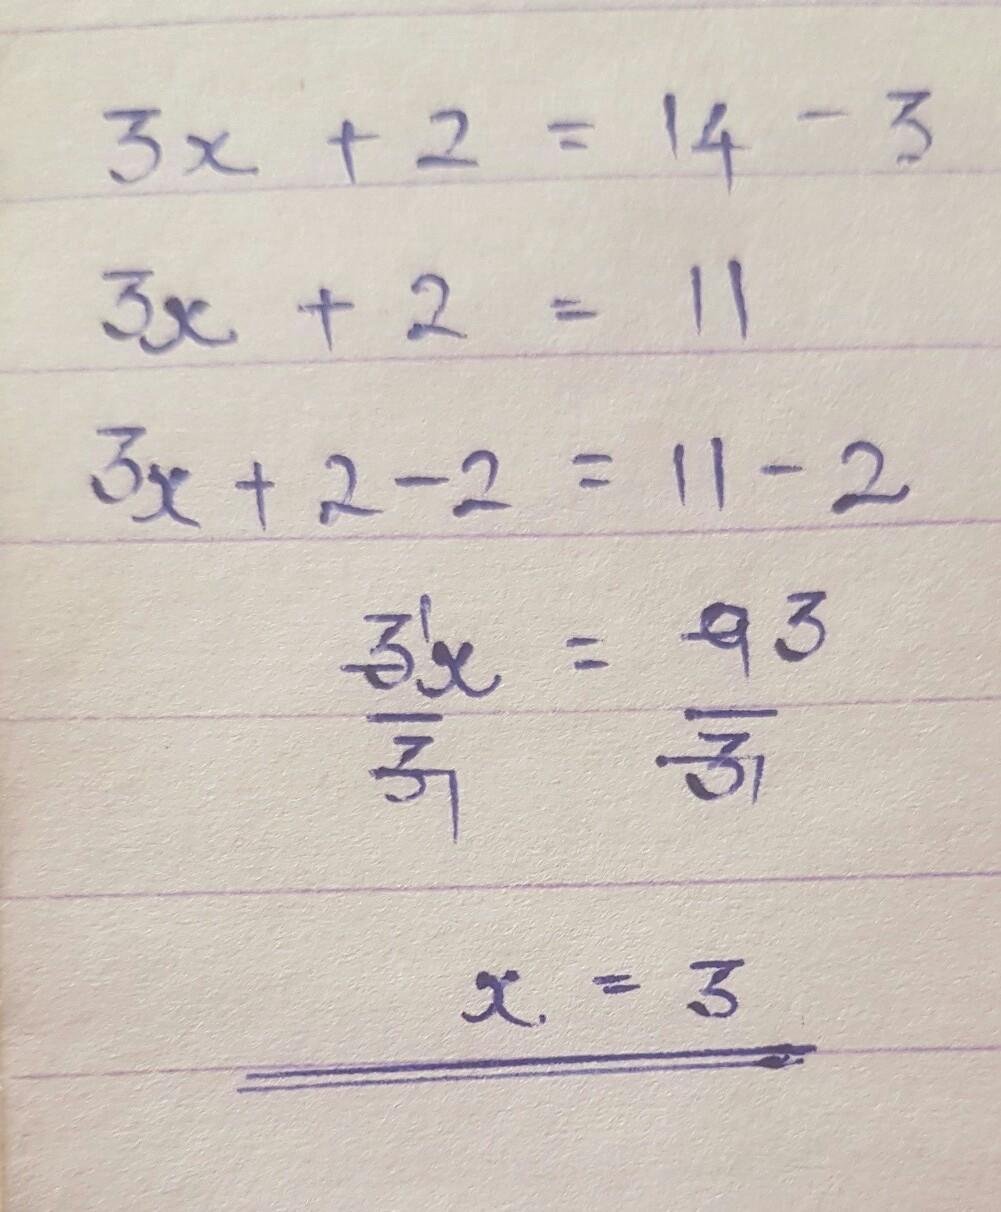 3x + 2 = 14 - 3
3x + 2 = 11
3x + 2 - 2 = 11 - 2
3 1x = 9 3
3 1 3 1
x = 3